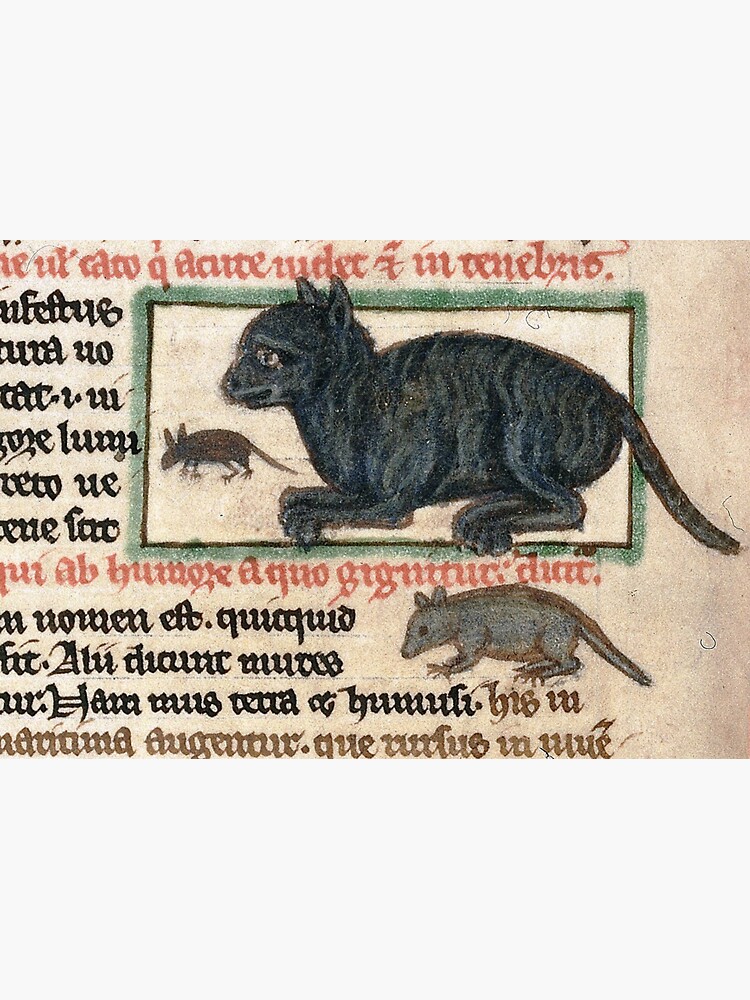 ul' cato q̇ acute uidet ⁊ in tenebris.
nfestus
tura uo
tat · i · ui
gore lumi
ue
tene scit
qui ab humore a quo gignitur: dicit̄.
nomen est. quicquid
fit. Alii dicunt mures
tur: Nam mus terra & humus i. his in
maritima augentur. que rursus in